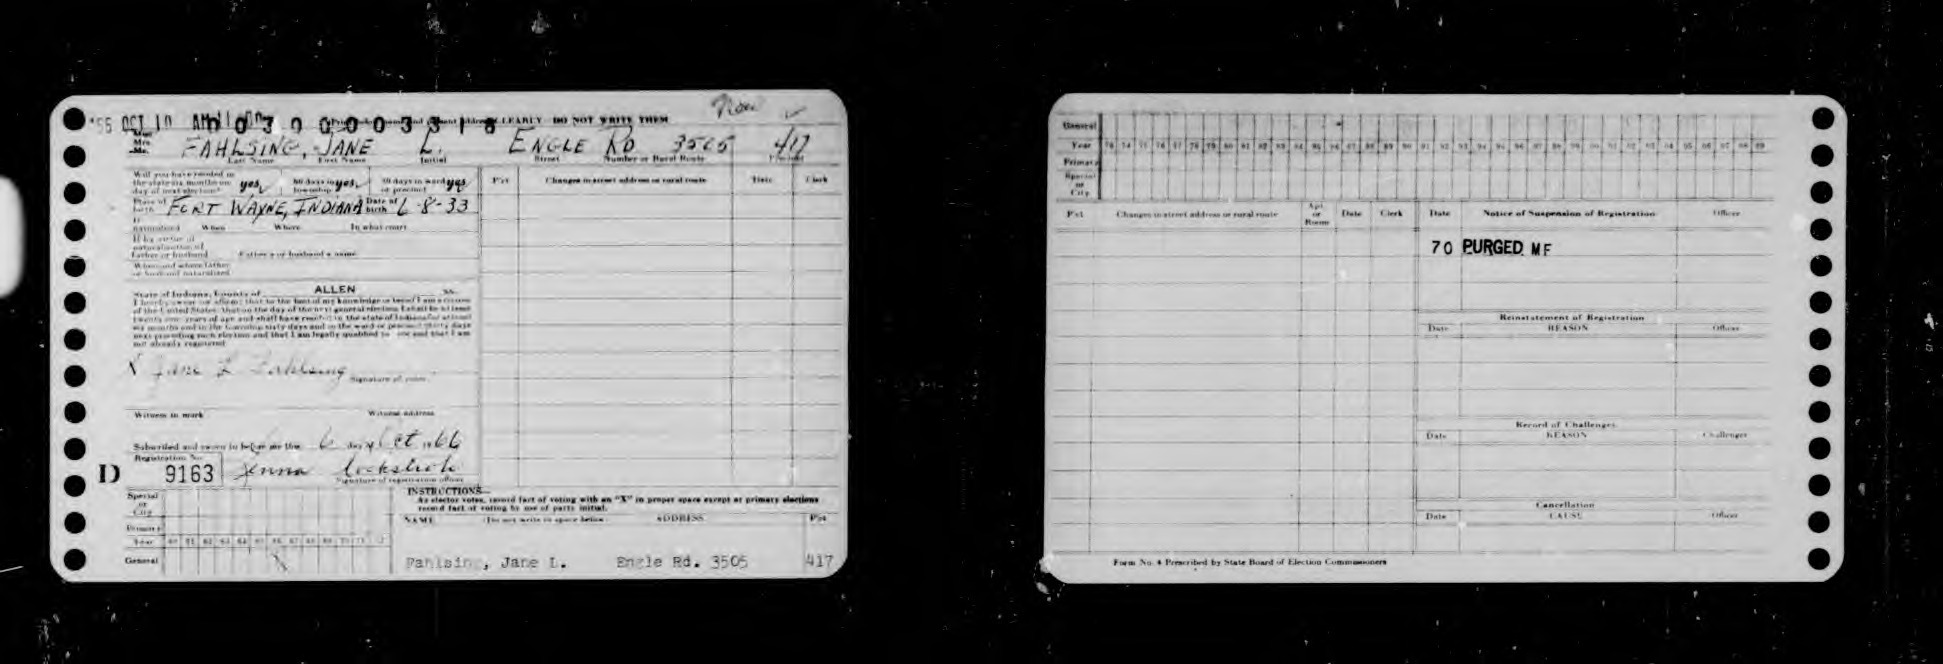 New ✓
'66 OCT 10 AM 11 00
00300003318
CLEARLY DO NOT WRITE THEM
Miss
Mrs.
Mr.
FAHLSING, JANE L. ENGLE RD 3505 417
Last Name First Name Initial Street Number or Rural Route Precinct
Will you have resided in
the state six months on
day of next election? yes 60 days in township yes 30 days in ward or precinct yes
Pct Changes in street address or rural route Date Clerk
Place of birth FORT WAYNE, INDIANA Date of birth 6-8-33
If naturalized When Where In what court
If by virtue of
naturalization of
father or husband Father's or husband's name
When and where father
or husband naturalized
State of Indiana, County of ALLEN ss.
I hereby swear or affirm that to the best of my knowledge or belief I am a citizen
of the United States, that on the day of the next general election I shall be at least
twenty-one years of age and shall have resided in the state of Indiana for at least
six months and in the township sixty days and in the ward or precinct thirty days
next preceding such election and that I am legally qualified to vote and that I am
not already registered
X Jane L Fahlsing
Signature of voter
Witness to mark Witness address
Subscribed and sworn to before me this 6 day of Oct 1966
Registration No.
D 9163
Signature of registration officer
Special
or
City
Primary
Year
General
INSTRUCTIONS—
As elector votes, record fact of voting with an "X" in proper space except at primary elections
record fact of voting by use of party initial.
NAME (Do not write in space below) ADDRESS Pct
Fahlsing, Jane L. Engle Rd. 3505 417
General
Year 73 74 75 76 77 78 79 80 81 82 83 84 85 86 87 88 89 90 91 92 93 94 95 96 97 98 99
Primary
Special
or
City
Pct Changes in street address or rural route Apt. or Room Date Clerk
Date Notice of Suspension of Registration Officer
70 PURGED MF
Reinstatement of Registration
Date REASON Officer
Record of Challenges
Date REASON Challenger
Cancellation
Date CAUSE Officer
Form No. 4 Prescribed by State Board of Election Commissioners